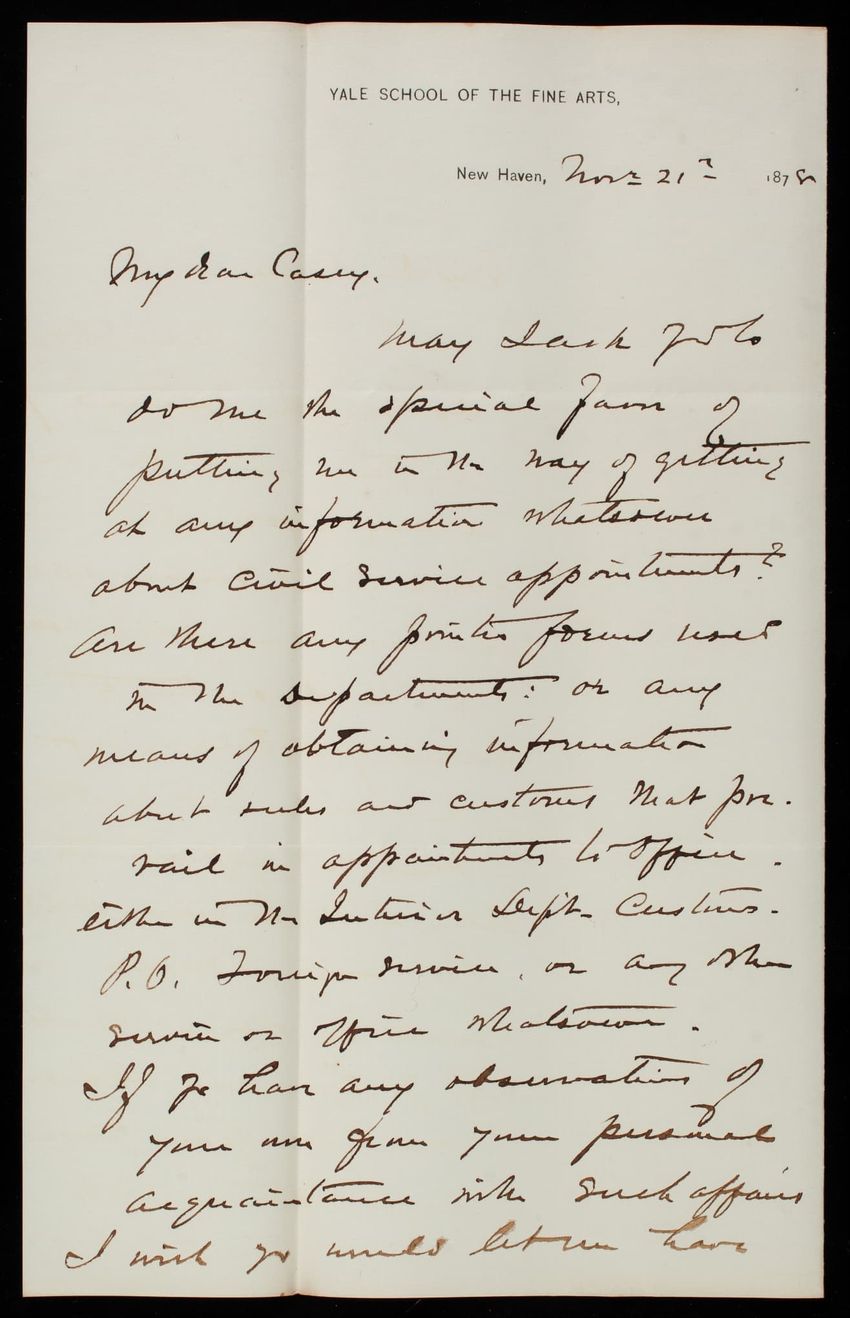 YALE SCHOOL OF THE FINE ARTS,
New Haven, Nov. 21st 1878
My dear Casey.
May I ask you to
do me the special favor of
putting me in the way of getting
at any information whatsoever
about civil service appointments?
Are there any printed forms used
in the Departments: or any
means of obtaining information
about rules and customs that pre-
vail in appointments to office.
either in the Interior Dept. Customs.
P.O. Foreign service, or any other
service or office whatsoever.
If you have any observations of
your own from your personal
acquaintance with such affairs
I wish you would let me have